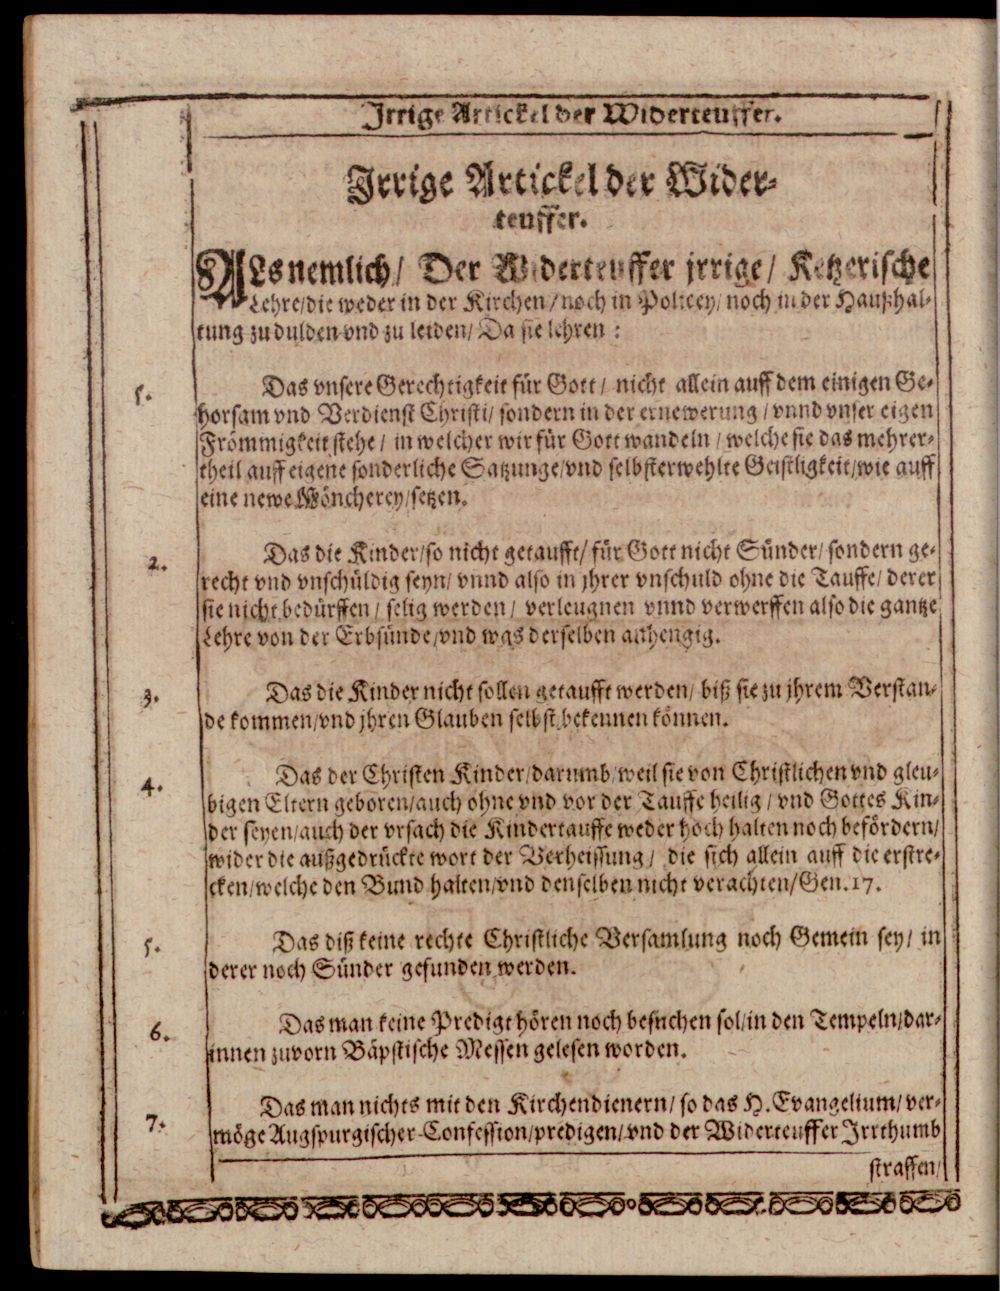 Irrige Artickel der Widerteuffer.
Irrige Artickel der Wider-
teuffer.
ALs nemlich/ Der Widerteuffer jrrige/ Ketzerische
Lehre/die weder in der Kirchen/noch in Policey/noch in der Haußhal-
tung zu dulden vnd zu leiden/ Da sie lehren:
1. Das vnsere Gerechtigkeit für Gott/ nicht allein auff dem einigen Ge-
horsam vnd Verdienst Christi/ sondern in der ernewerung/ vnnd vnser eigen
Frömmigkeit stehe/ in welcher wir für Gott wandeln/ welche sie das mehrer-
theil auff eigene sonderliche Satzunge/vnd selbsterwehlte Geistligkeit/wie auff
eine newe Möncherey/setzen.
2. Das die Kinder/so nicht getaufft/ für Gott nicht Sünder/ sondern ge-
recht vnd vnschüldig seyn/ vnnd also in jhrer vnschuld ohne die Tauffe/ derer
sie nicht bedürffen/ selig werden/ verleugnen vnnd verwerffen also die gantze
Lehre von der Erbsünde/vnd was derselben anhengig.
3. Das die Kinder nicht sollen getaufft werden/ biß sie zu jhrem Verstan-
de kommen/vnd jhren Glauben selbst bekennen können.
4. Das der Christen Kinder/darumb/weil sie von Christlichen vnd gleu-
bigen Eltern geboren/auch ohne vnd vor der Tauffe heilig/ vnd Gottes Kin-
der seyen/auch der vrsach die Kindertauffe weder hoch halten noch befördern/
wider die außgedrückte wort der Verheissung/ die sich allein auff die erstre-
cken/welche den Bund halten/vnd denselben nicht verachten/Gen.17.
5. Das diß keine rechte Christliche Versamlung noch Gemein sey/ in
derer noch Sünder gefunden werden.
6. Das man keine Predigt hören noch besuchen sol/in den Tempeln/dar-
innen zuvorn Bäpstische Messen gelesen worden.
7. Das man nichts mit den Kirchendienern/ so das H. Evangelium/ ver-
möge Augspurgischer Confession/predigen/vnd der Widerteuffer Irrthumb
straffen/